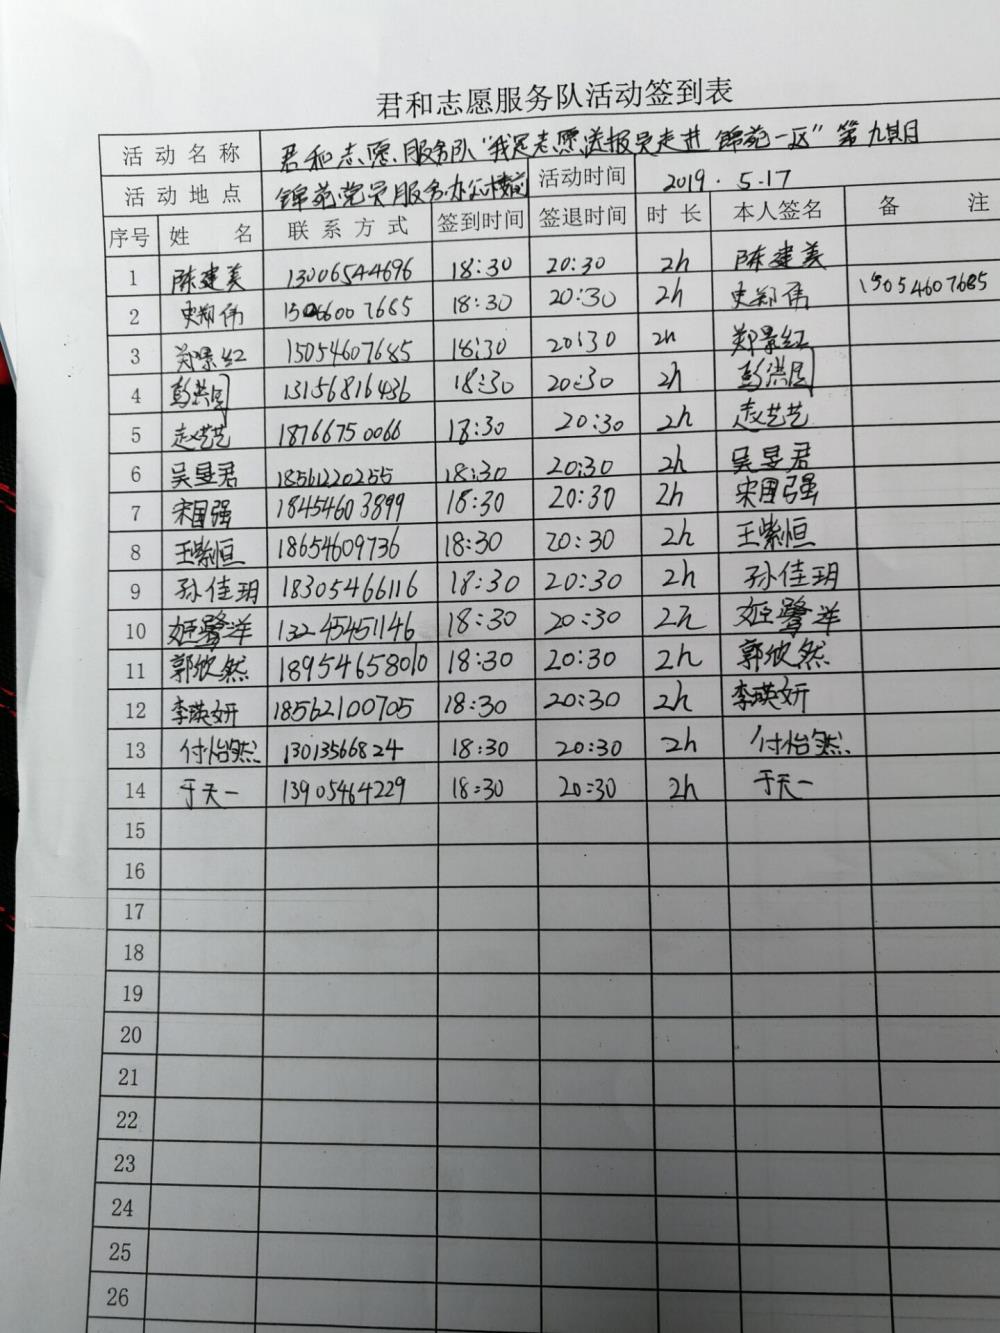 君和志愿服务队活动签到表
活动名称 君和志愿服务队"我是志愿送报员走进锦苑一区"第九期
活动地点 锦苑党员服务办公楼前 活动时间 2019.5.17
序号 姓名 联系方式 签到时间 签退时间 时长 本人签名 备注
1 陈建美 13006544696 18:30 20:30 2h 陈建美
2 史郑伟 18:30 20:30 2h 史郑伟 15054607685
3 郑景红 15054607685 18:30 20:30 2h 郑景红
4 13156816436 18:30 20:30 2h
5 赵艺艺 18766750066 18:30 20:30 2h 赵艺艺
6 吴旻君 18561220255 18:30 20:30 2h 吴旻君
7 宋国强 18454603899 18:30 20:30 2h 宋国强
8 王紫恒 18654609736 18:30 20:30 2h 王紫恒
9 孙佳玥 18305466116 18:30 20:30 2h 孙佳玥
10 姬鹭洋 13245451146 18:30 20:30 2h 姬鹭洋
11 郭欣然 18954658010 18:30 20:30 2h 郭欣然
12 李瑛妍 18562100705 18:30 20:30 2h 李瑛妍
13 付怡然 13013566824 18:30 20:30 2h 付怡然
14 于天一 13905464229 18:30 20:30 2h 于天一
15
16
17
18
19
20
21
22
23
24
25
26